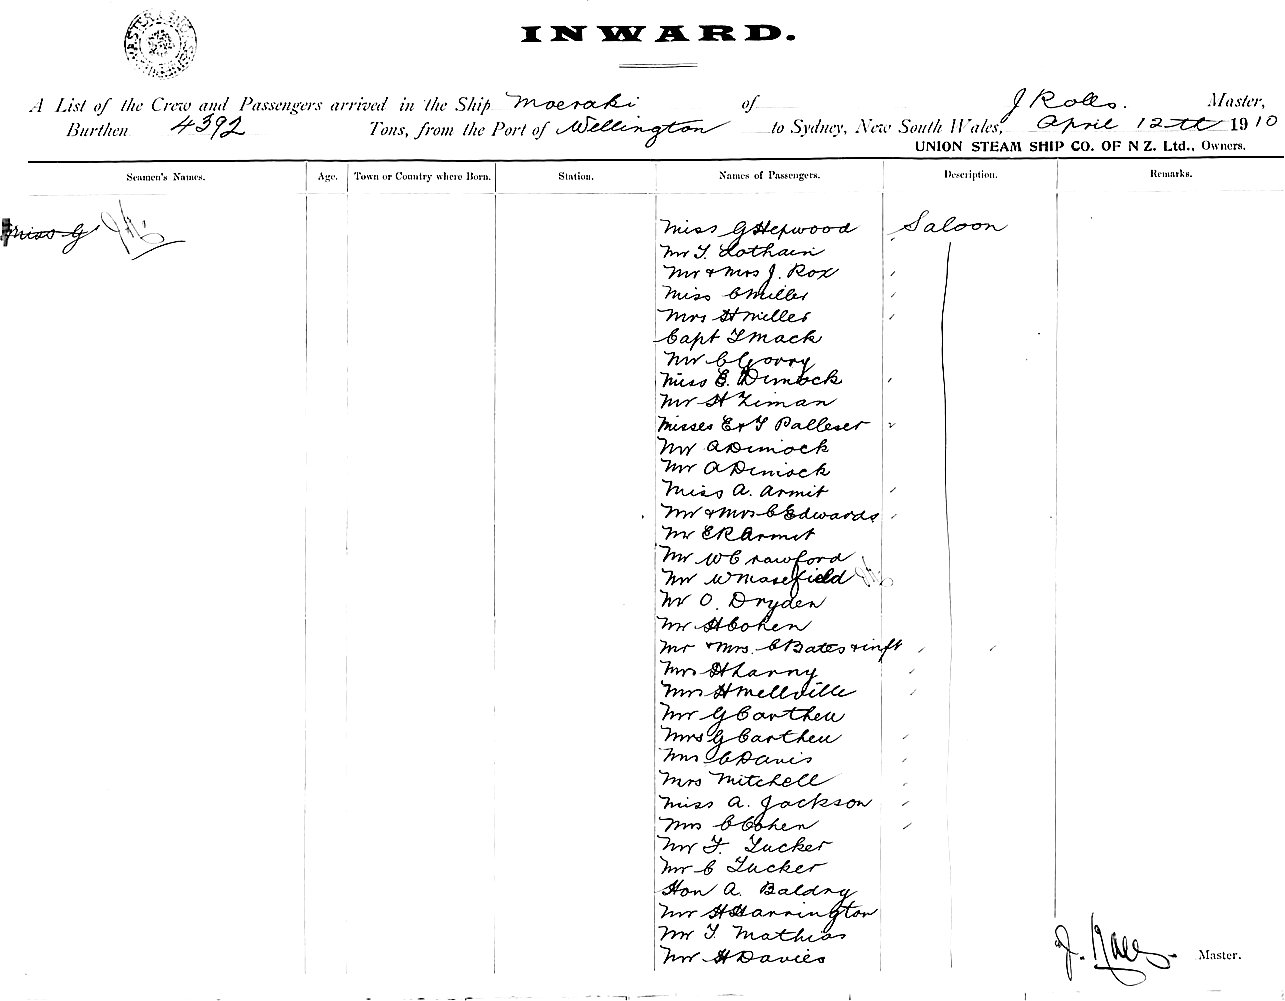 INWARD.
A List of the Crew and Passengers arrived in the Ship Moeraki of J Rolls. Master,
Burthen 4392 Tons, from the Port of Wellington to Sydney, New South Wales, April 12th 1910
UNION STEAM SHIP CO. OF N Z. Ltd., Owners.
Seamen's Names. Age. Town or Country where Born. Station. Names of Passengers. Description. Remarks.
Miss G
Miss G Hepwood Saloon
Mr T. Lothain
Mr & Mrs J. Rox
Miss C Miller
Mrs H Miller
Capt T Mack
Mr C Gorry
Miss E. Dimock
Mr H Ziman
Misses E & T Palleser
Mr A Dimock
Mr A Dimock
Miss A. Armit
Mr & Mrs C Edwards
Mr E R Armit
Mr W Crawford
Mr W Masefield
Mr O. Dryden
Mr H Cohen
Mr & Mrs. C Bates & inft
Mrs H Lanny
Mrs H Mellville
Mr G Carthew
Mrs G Carthew
Mrs C Davis
Mrs Mitchell
Miss A. Jackson
Mrs C Cohen
Mr F. Tucker
Mr C Tucker
Hon A. Baldry
Mr H Harrington
Mr T. Mathias
Mr H Davies
J. Rolls. Master.